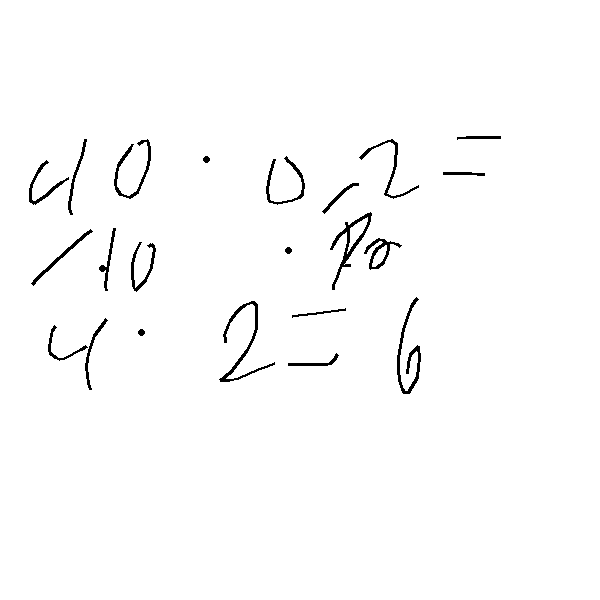 40 · 0,2 =
/10 · 10
4 · 2 = 6